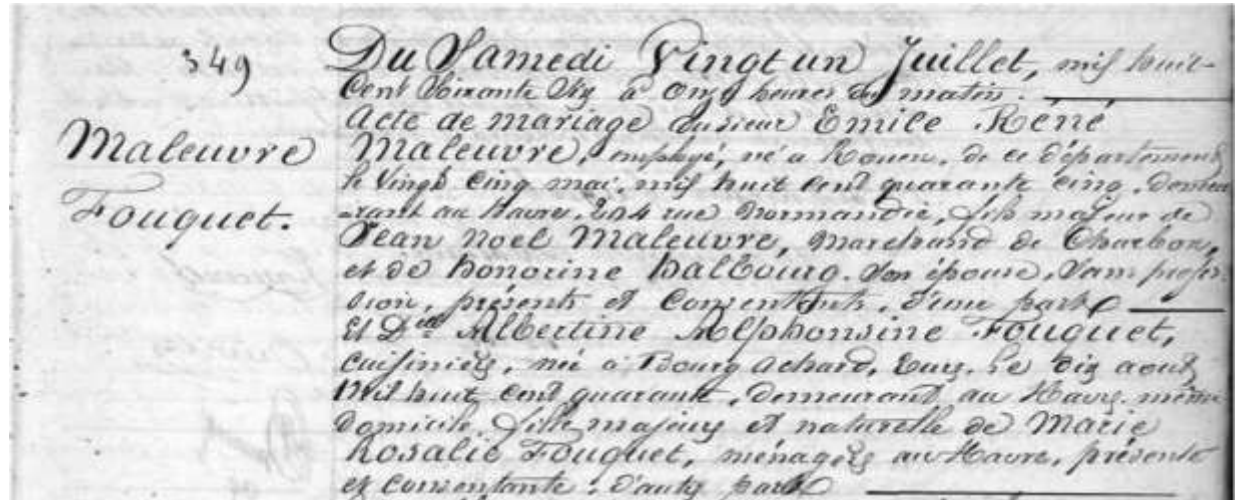 349
Maleuvre
Fouquet.
Du Samedi Vingt un Juillet, mil huit-
Cent Soixante Six à onze heures du matin.
Acte de mariage du sieur Emile René
Maleuvre, employé, né à Rouen, de ce département
le vingt cinq mai, mil huit cent quarante cinq, demeu
-rant au Havre, rue Normandie, fils majeur de
Jean Noel Maleuvre, marchand de Charbon,
et de honorine halbourg, son épouse, sans profes-
sion, présents et consentants, d'une part
Et Dlle Albertine Alphonsine Fouquet,
cuisinière, née à Bourg achard, Eure, le dix août
mil huit cent quarante, demeurant au Havre même
domicile, fille majeure et naturelle de Marie
Rosalie Fouquet, ménagère au Havre, présente
et consentante, d'autre part